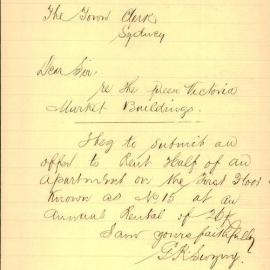 The Town Clerk
Sydney
Dear Sir.
re the Queen Victoria
Market Buildings.
I beg to submit an
offer to Rent Half of an
apartment on the First Floor
known as No 15 at an
Annual Rental of
I am yours faithfully